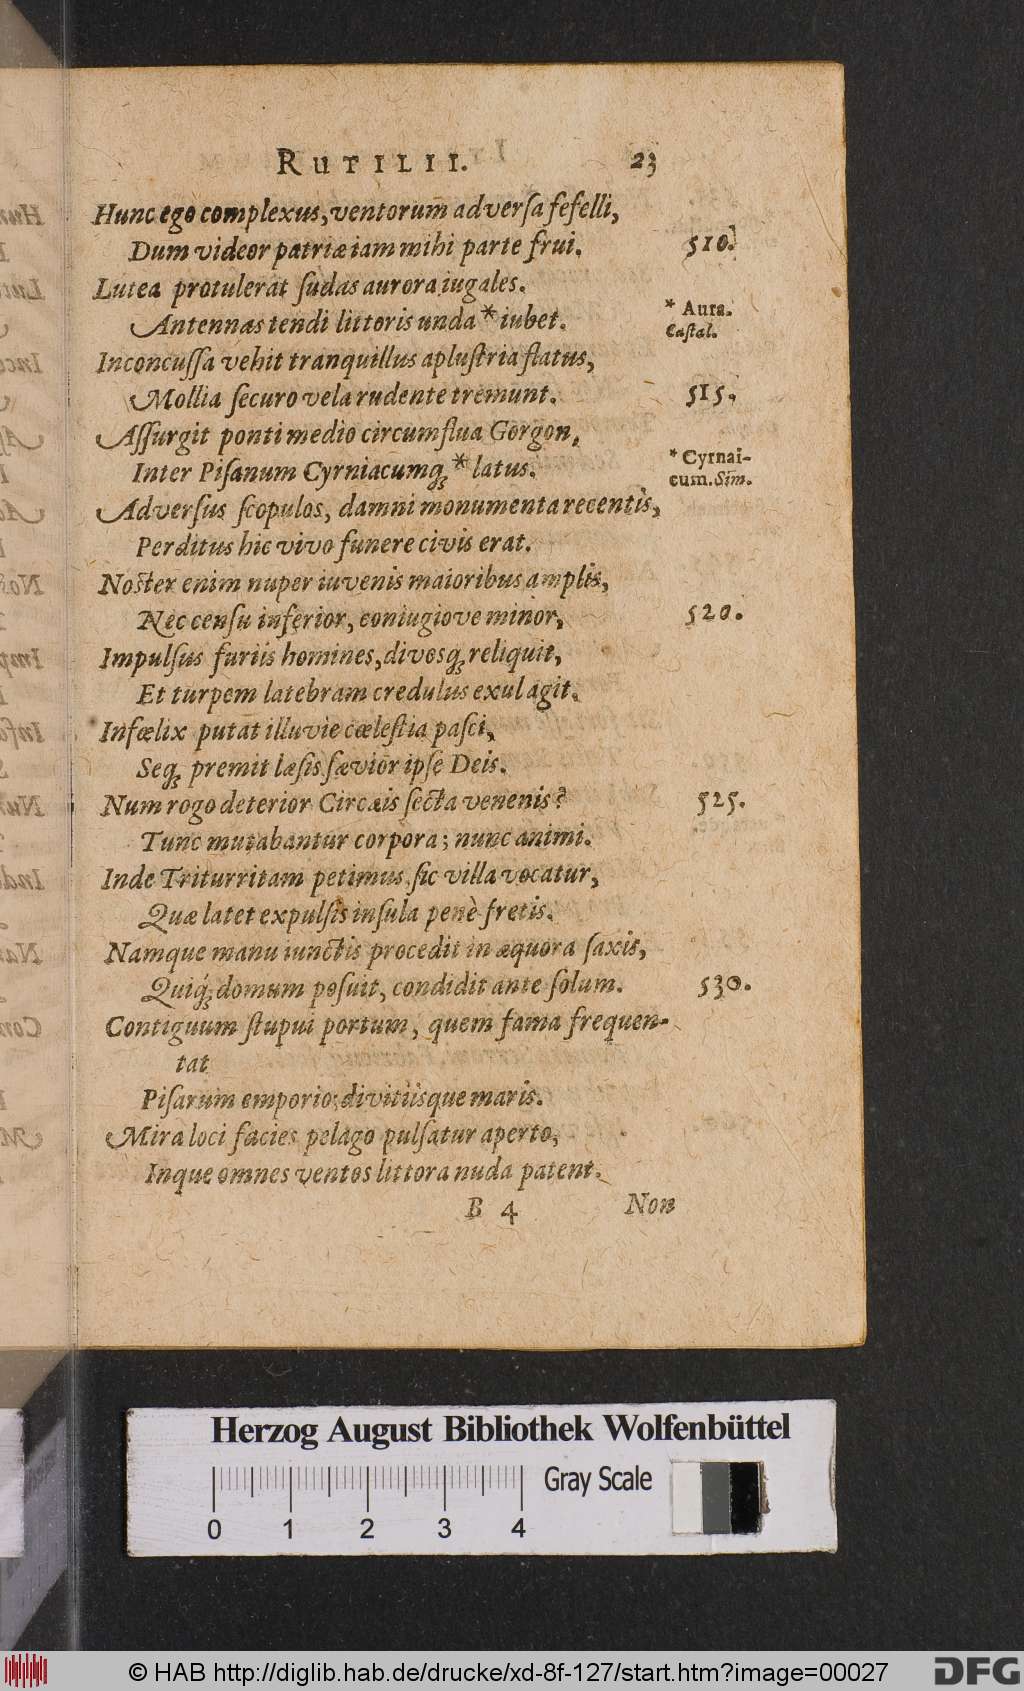 RUTILII. 23
Hunc ego complexus, ventorum adversa fefelli,
Dum videor patriæ iam mihi parte frui. 510.
Lutea protulerat sudas aurora iugales.
Antennas tendi littoris unda * iubet. * Aura. Castal.
Inconcussa vehit tranquillus aplustria flatus,
Mollia securo vela rudente tremunt. 515.
Assurgit ponti medio circumflua Gorgon,
Inter Pisanum Cyrniacumq́; * latus. * Cyrnai-
cum. Sim.
Adversus scopulos, damni monumenta recentis,
Perditus hic vivo funere civis erat.
Noster enim nuper iuvenis maioribus amplis,
Nec censu inferior, coniugiove minor, 520.
Impulsus furiis homines, divosq́; reliquit,
Et turpem latebram credulus exul agit.
Infœlix putat illuvie cœlestia pasci,
Seq́; premit læsis sævior ipse Deis.
Num rogo deterior Circæis secta venenis? 525.
Tunc mutabantur corpora; nunc animi.
Inde Triturritam petimus, sic villa vocatur,
Quæ latet expulsis insula penè fretis.
Namque manu iunctis procedit in æquora saxis,
Quiq́; domum posuit, condidit ante solum. 530.
Contiguum stupui portum, quem fama frequen-
tat
Pisarum emporio, divitiisque maris.
Mira loci facies pelago pulsatur aperto,
Inque omnes ventos littora nuda patent.
B 4 Non
Herzog August Bibliothek Wolfenbüttel
Gray Scale
0 1 2 3 4
© HAB http://diglib.hab.de/drucke/xd-8f-127/start.htm?image=00027
DFG